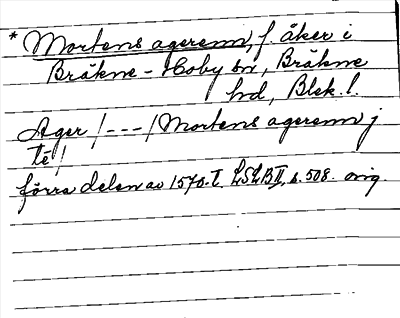 * Mortens agerenn, f. åker i
Bräkne-Hoby sn, Bräkne
hd, Blek. l.
Ager /---/ Mortens agerenn j
té!
förra delen av 1570-t. LSLB II, s. 508. orig.